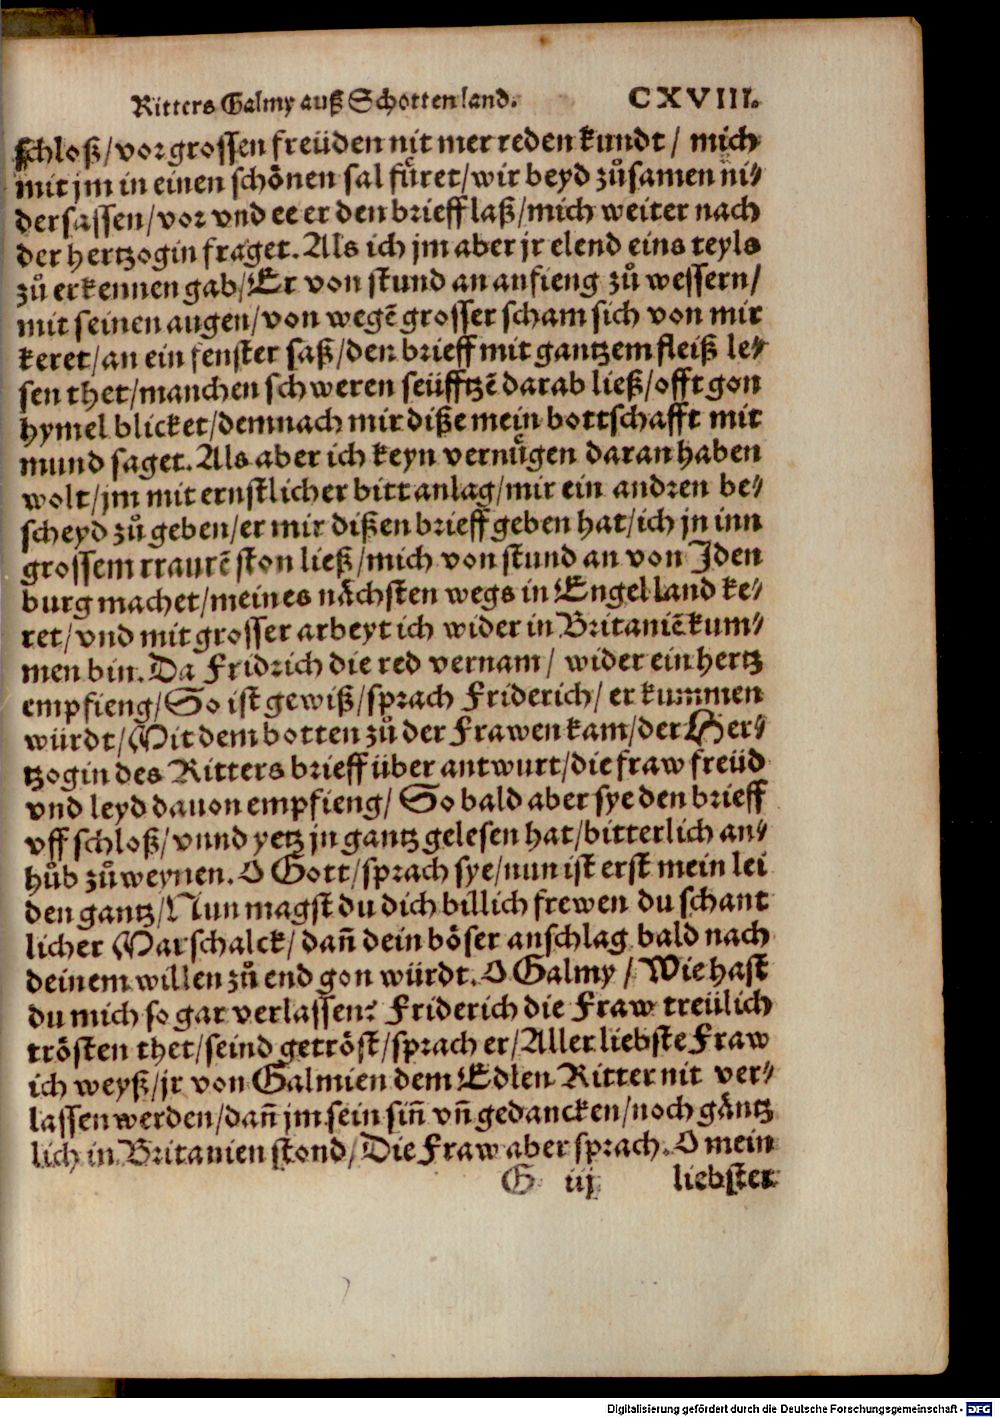 Ritters Galmy auß Schottenland. CXVIII.
schloß/vor grossen freüden nit mer reden kundt/ mich
mit jm in einen schönen sal fuͤret/wir beyd zuͦsamen ni-
dersassen/vor vnd ee er den brieff laß/mich weiter nach
der hertzogin fraget. Als ich jm aber jr elend eins teyls
zuͦ erkennen gab/Er von stund an anfieng zuͦ wessern/
mit seinen augen/von wegẽ grosser scham sich von mir
keret/an ein fenster saß/den brieff mit gantzem fleiß le-
sen thet/manchen schweren seüfftzẽ darab ließ/offt gon
hymel blicket/demnach mir diße mein bottschafft mit
mund saget. Als aber ich keyn vernuͤgen daran haben
wolt/jm mit ernstlicher bitt anlag/mir ein andren be-
scheyd zuͦ geben/er mir dißen brieff geben hat/ich jn inn
grossem traurẽ ston ließ/mich von stund an von Iden
burg machet/meines nächsten wegs in Engelland ke-
ret/vnd mit grosser arbeyt ich wider in Britaniẽ kum-
men bin. Da Fridrich die red vernam/ wider ein hertz
empfieng/So ist gewiß/sprach Friderich/ er kummen
würdt/Mit dem botten zuͦ der Frawen kam/der Her-
tzogin des Ritters brieff überantwurt/die fraw freüd
vnd leyd dauon empfieng/ So bald aber sye den brieff
vff schloß/vnnd yetz jn gantz gelesen hat/bitterlich an-
huͦb zuͦ weynen. O Gott/sprach sye/nun ist erst mein lei
den gantz/Nun magst du dich billich frewen du schant
licher Marschalck/ dañ dein böser anschlag bald nach
deinem willen zuͦ end gon würdt. O Galmy/ Wie hast
du mich so gar verlassen? Friderich die Fraw treülich
trösten thet/seind getröst/sprach er/Aller liebste Fraw
ich weyß/jr von Galmien dem Edlen Ritter nit ver-
lassen werden/dañ jm sein siñ vñ gedancken/noch gäntz
lich in Britanien stond/Die Fraw aber sprach. O mein
G iij liebster
Digitalisierung gefördert durch die Deutsche Forschungsgemeinschaft - DFG